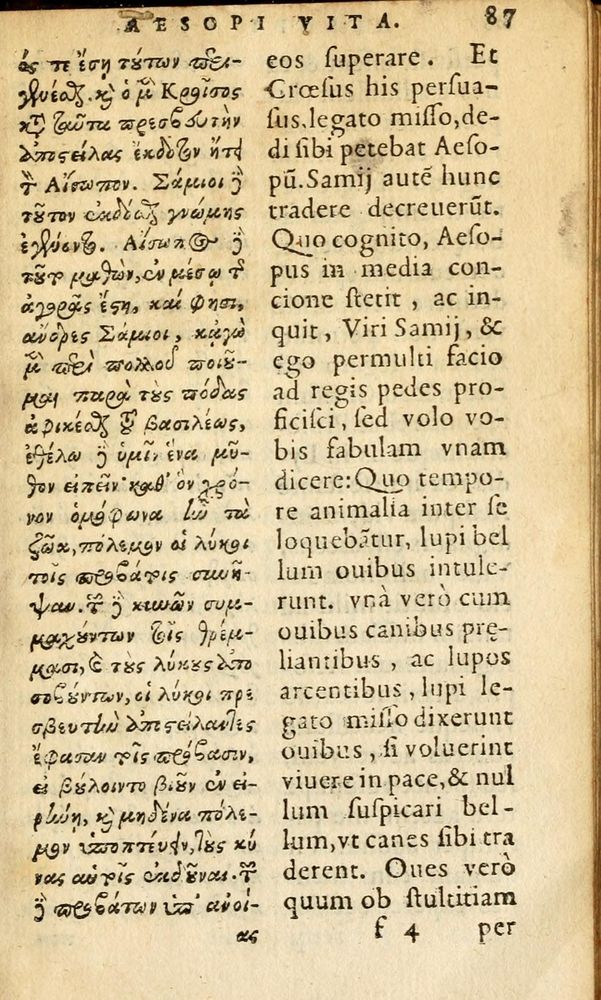 AESOPI VITA. 87
ός τε ἔση τούτων περι-
γενέσθαι. καὶ ὁ μὲν Κροῖσος
κατὰ ταῦτα πρεσβευτὴν
ἀποστείλας ἔκδοτον ᾔτει
τὸν Αἴσωπον. Σάμιοι δὲ
τοῦτον ἐκδόσθαι γνώμης
ἐγένοντο. Αἴσωπος δὲ
τοῦτο μαθὼν, ἐν μέσῳ τῆς
ἀγορᾶς ἔστη, καί φησι,
ἄνδρες Σάμιοι, κᾀγὼ
μὲν περὶ πολλοῦ ποιοῦ-
μαι παρὰ τοὺς πόδας
ἀφικέσθαι τοῦ βασιλέως,
ἐθέλω δὲ ὑμῖν ἕνα μῦ-
θον εἰπεῖν· καθ' ὃν χρό-
νον ὁμόφωνα ἦν τὰ
ζῶα, πόλεμον οἱ λύκοι
τοῖς προβάτοις συνῆ-
ψαν. τῶν δὲ κυνῶν συμ-
μαχούντων τοῖς θρέμ-
μασι, καὶ τοὺς λύκους ἀπο
σοβούντων, οἱ λύκοι πρε
σβευτὴν ἀποστείλαντες
ἔφασαν τοῖς πρόβασιν,
εἰ βούλοιντο βιοῦν ἐν εἰ-
ρήνῃ, καὶ μηδένα πόλε-
μον ὑποπτεύειν, τοὺς κύ
νας αὐτοῖς ἐκδοῦναι. τῶν
δὲ προβάτων ὑπ' ἀνοί-
ας
eos superare. Et
Crœsus his persua-
sus, legato misso, de-
di sibi petebat Aeso-
pū. Samij autē hunc
tradere decreuerūt.
Quo cognito, Aeso-
pus in media con-
cione stetit, ac in-
quit, Viri Samij, &
ego permulti facio
ad regis pedes pro-
ficisci, sed volo vo-
bis fabulam vnam
dicere: Quo tempo-
re animalia inter se
loquebātur, lupi bel
lum ouibus intule-
runt. vnà verò cum
ouibus canibus prę-
liantibus, ac lupos
arcentibus, lupi le-
gato misso dixerunt
ouibus, si voluerint
viuere in pace, & nul
lum suspicari bel-
lum, vt canes sibi tra
derent. Oues verò
quum ob stultitiam
f 4 per